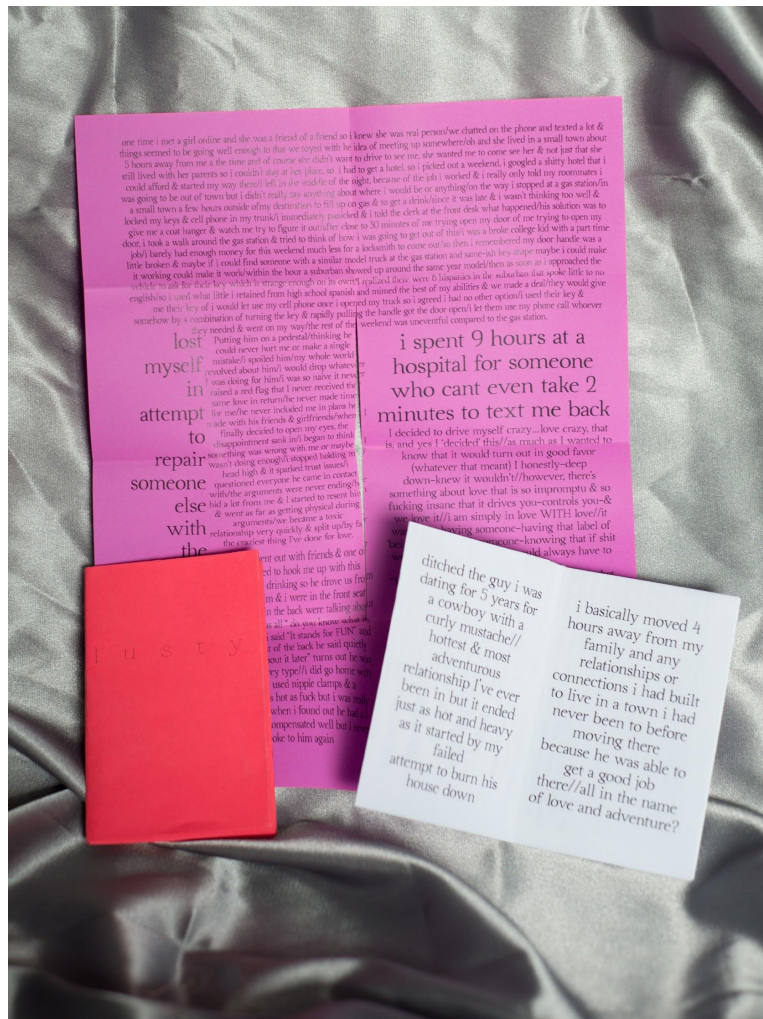 one time i met a girl online and she was a friend of a friend so i knew she was real person/we chatted on the phone and texted a lot &
things seemed to be going well enough to that we toyed with he idea of meeting up somewhere/oh and she lived in a small town about
5 hours away from me a the time and of course she didn't want to drive to see me, she wanted me to come see her & not just that she
still lived with her parents so i couldn't stay at her place, so i had to get a hotel, so i picked out a weekend, i googled a shitty hotel that i
could afford & started my way there/i left in the middle of the night, because of the job i worked & i really only told my roommates i
was going to be out of town but i didn't really say anything about where i would be or anything/on the way i stopped at a gas station/in
a small town a few hours outside of my destination to fill up on gas & to get a drink/since it was late & i wasn't thinking too well &
locked my keys & cell phone in my trunk/i immediately panicked & i told the clerk at the front desk what happened/his solution was to
give me a coat hanger & watch me try to figure it out/after close to 30 minutes of me trying open my door of me trying to open my
door, i took a walk around the gas station & tried to think of how i was going to get out of this/i was a broke college kid with a part time
job/i barely had enough money for this weekend much less for a locksmith to come out/so then i remembered my door handle was a
little broken & maybe if i could find someone with a similar model truck at the gas station and same-ish key shape maybe i could make
it working could make it work/within the hour a suburban showed up around the same year model/then as soon as i approached the
vehicle to ask for their key which is strange enough on its own/i realized there were 6 hispanics in the suburban that spoke little to no
english/so i used what little i retained from high school spanish and mimed the best of my abilities & we made a deal/they would give
me their key of i would let use my cell phone once i opened my truck so i agreed i had no other option/i used their key &
somehow by a combination of turning the key & rapidly pulling the handle got the door open/i let them use my phone call whoever
they needed & went on my way/the rest of the weekend was uneventful compared to the gas station.
lost
myself
in
attempt
to
repair
someone
else
with
the
Putting him on a pedestal/thinking he
could never hurt me or make a single
mistake/i spoiled him/my whole world
revolved about him/i would drop whatever
i was doing for him/i was so naive it never
raised a red flag that I never received the
same love in return/he never made time
for me/he never included me in plans he
made with his friends & girlfriends/when
finally decided to open my eyes, the
disappointment sank in/i began to think
something was wrong with me or maybe
wasn't doing enough/i stopped holding m
head high & it sparked trust issues/i
questioned everyone he came in contact
with/the arguments were never ending/he
hid a lot from me & I started to resent him
& went as far as getting physical during
arguments/we became a toxic
relationship very quickly & split up/by fa
the craziest thing I've done for love.
ent out with friends & one of
ed to hook me up with this
drinking so he drove us from
m & i were in the front seat
n the back were talking about
as all " do you know what it
i said "It stands for FUN" and
r of the back he said quietly
out it later" turns out he was
ey type//i did go home with
used nipple clamps & a
s hot as fuck but i was really
when i found out he had a
ompensated well but i never
oke to him again
i spent 9 hours at a
hospital for someone
who cant even take 2
minutes to text me back
I decided to drive myself crazy...love crazy, that
is, and yes I 'decided' this//as much as I wanted to
know that it would turn out in good favor
(whatever that meant) I honestly–deep
down–knew it wouldn't//however, there's
something about love that is so impromptu & so
fucking insane that it drives you–controls you–&
we love it//i am simply in love WITH love//it
having someone–having that label of
omeone–knowing that if shit
uld always have to
lusty
ditched the guy i was
dating for 5 years for
a cowboy with a
curly mustache//
hottest & most
adventurous
relationship I've ever
been in but it ended
just as hot and heavy
as it started by my
failed
attempt to burn his
house down
i basically moved 4
hours away from my
family and any
relationships or
connections i had built
to live in a town i had
never been to before
moving there
because he was able to
get a good job
there//all in the name
of love and adventure?